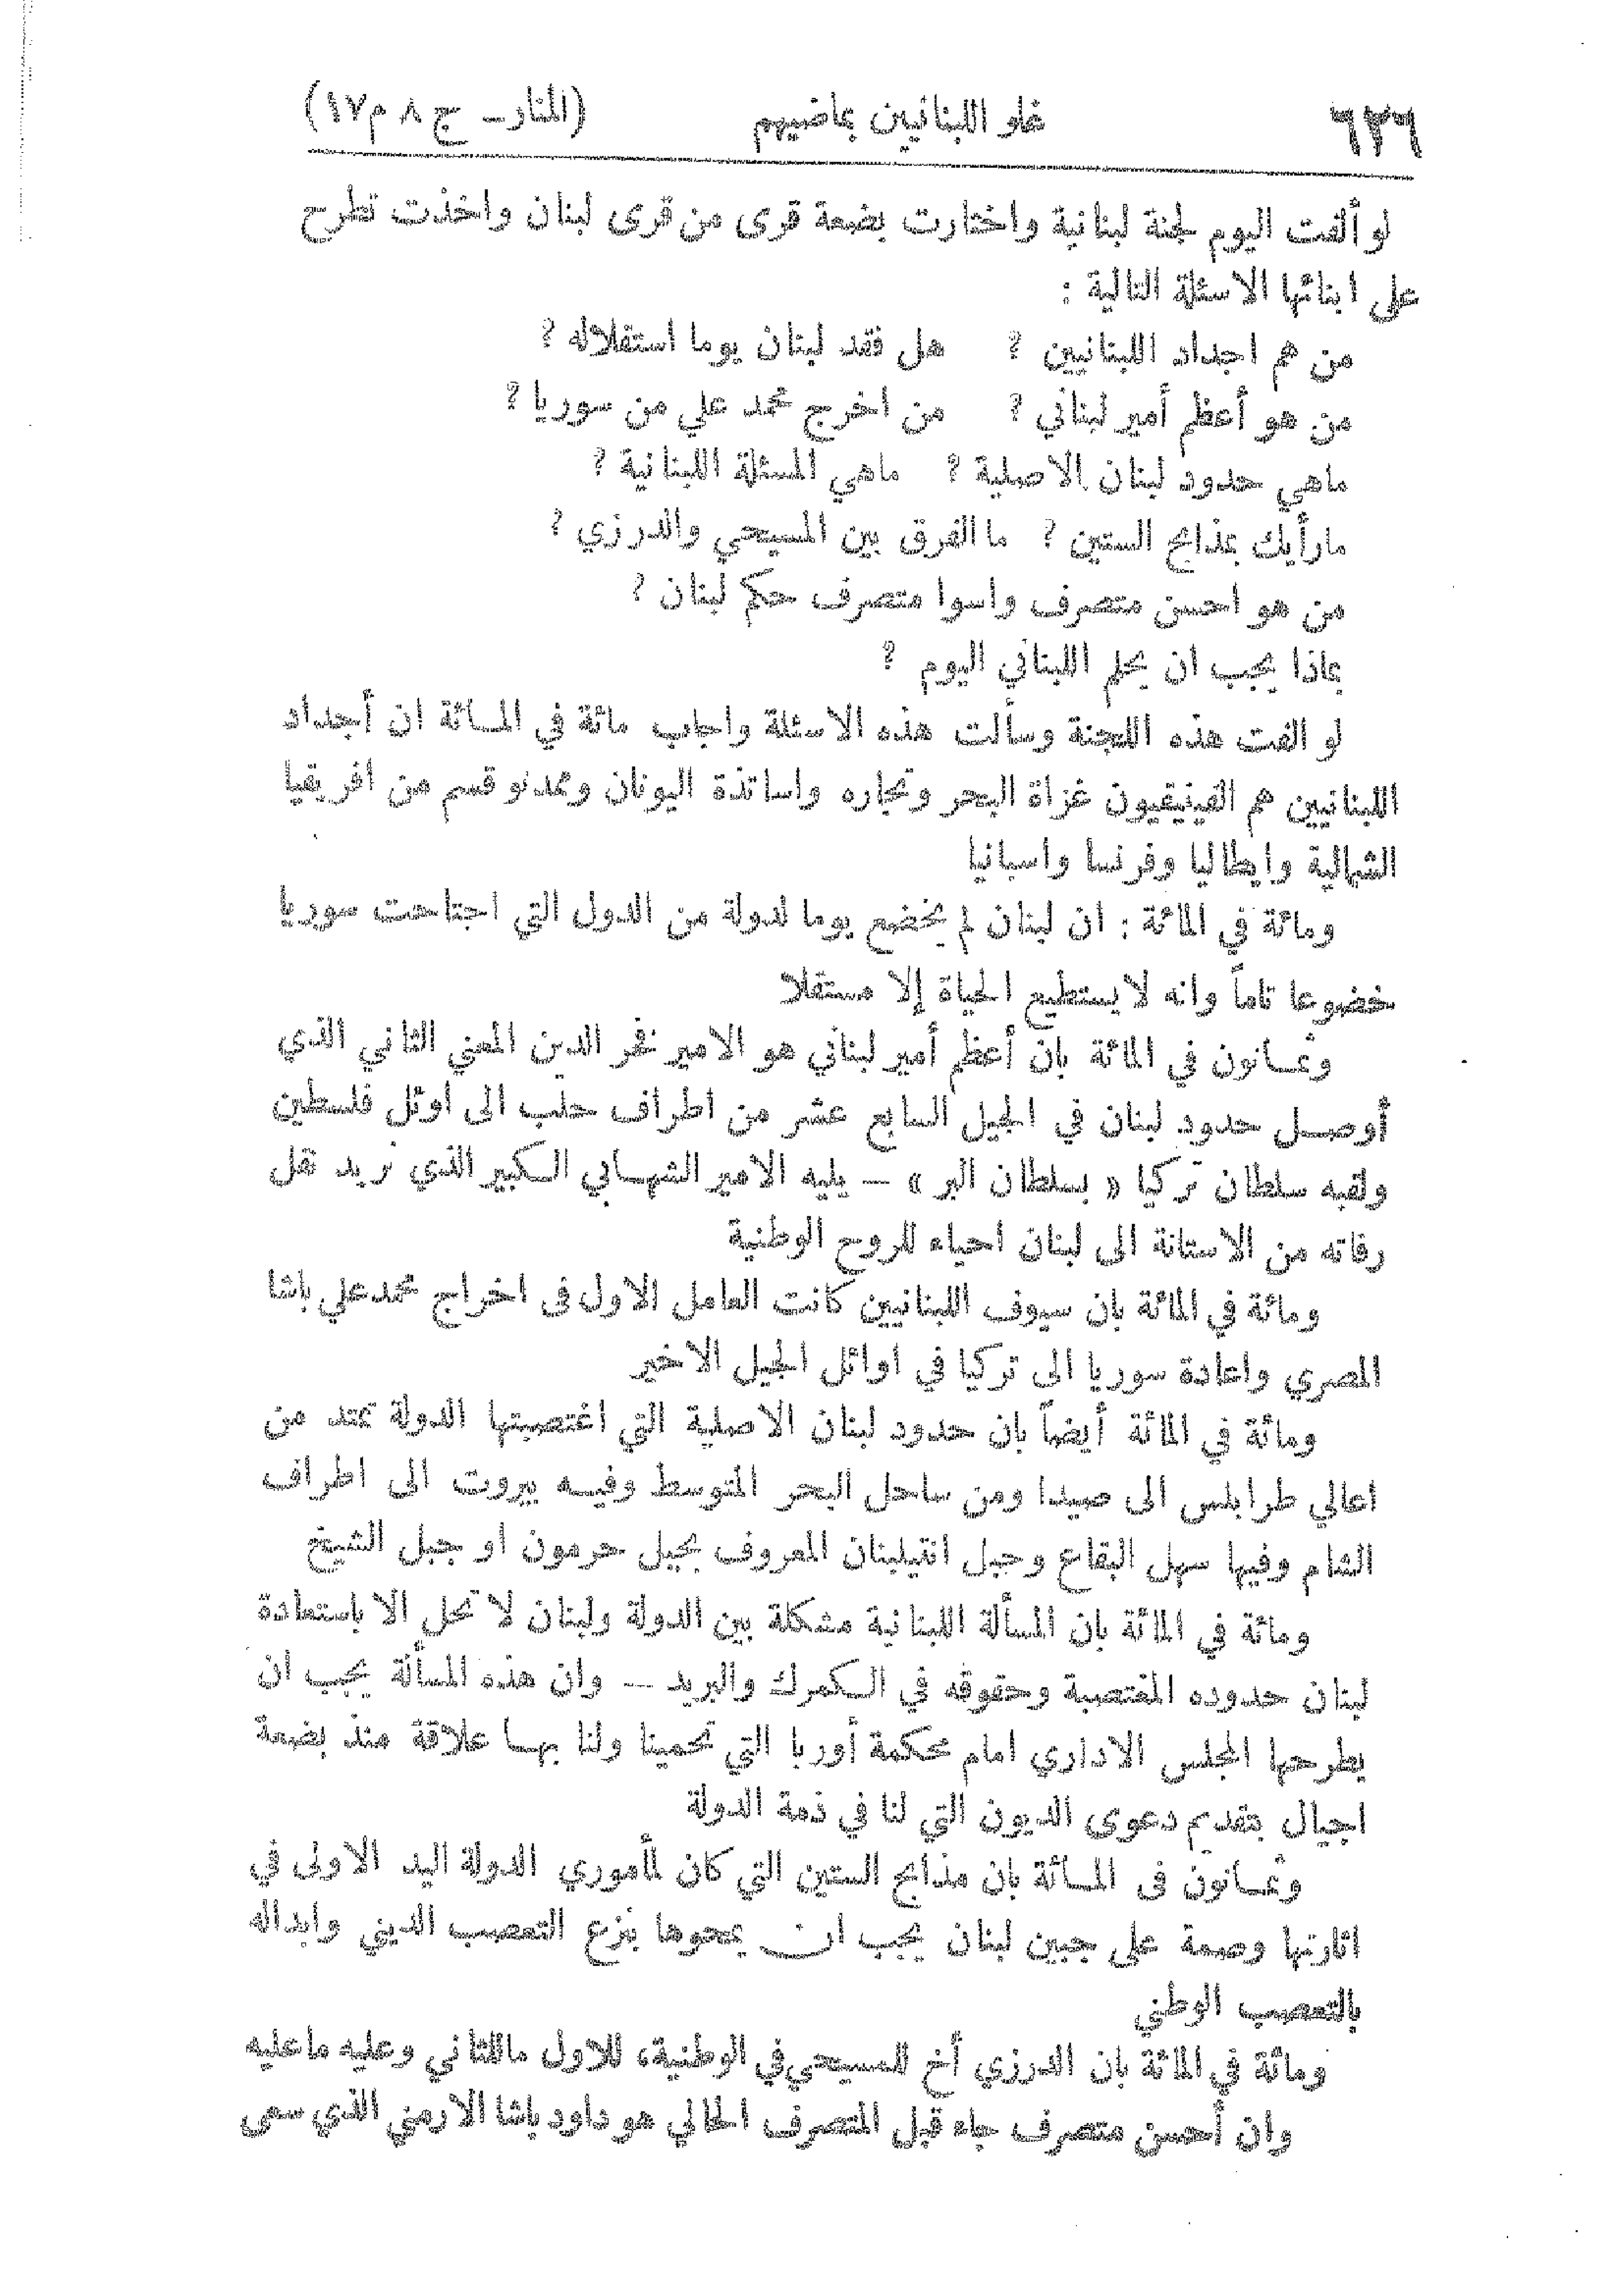 ٦٢٦ غلو اللبنانيين بماضيهم (المنار ـ ج ٨ م ١٧)
لو ألفت اليوم لجنة لبنانية واختارت بضعة قرى من قرى لبنان واخذت تطرح
على ابنائها الاسئلة التالية :
من هم اجداد اللبنانيين ? هل فقد لبنان يوما استقلاله ?
من هو أعظم أمير لبناني ? من اخرج محمد علي من سوريا ?
ماهي حدود لبنان الاصلية ? ماهي المسئلة اللبنانية ?
مارأيك بمذابح الستين ? ما الفرق بين المسيحي والدرزي ?
من هو احسن متصرف واسوا متصرف حكم لبنان ?
بماذا يجب ان يحلم اللبناني اليوم ?
لو الفت هذه اللجنة وسألت هذه الاسئلة واجاب مائة في المائة ان أجداد
اللبنانيين هم الفينيقيون غزاة البحر وتجاره واساتذة اليونان وممدنو قسم من افريقيا
الشمالية وايطاليا وفرنسا واسبانيا
ومائة في المائة : ان لبنان لم يخضع يوما لدولة من الدول التي اجتاحت سوريا
خضوعا تاماً وانه لا يستطيع الحياة إلا مستقلا
وثمانون في المائة بان أعظم أمير لبناني هو الامير فخر الدين المعني الثاني الذي
أوصل حدود لبنان في الجيل السابع عشر من اطراف حلب الى اوئل فلسطين
ولقبه سلطان تركيا « بسلطان البر » — يليه الامير الشهابي الكبير الذي نريد نقل
رفاته من الاستانة الى لبنان احياء للروح الوطنية
ومائة في المائة بان سيوف اللبنانيين كانت العامل الاول في اخراج محمد علي باشا
المصري واعادة سوريا الى تركيا في اوائل الجيل الاخير
ومائة في المائة أيضاً بان حدود لبنان الاصلية التي اغتصبتها الدولة تمتد من
اعالي طرابلس الى صيدا ومن ساحل البحر المتوسط وفيه بيروت الى اطراف
الشام وفيها سهل البقاع وجبل انتيلبنان المعروف بجبل حرمون او جبل الشيخ
ومائة في المائة بان المسألة اللبنانية مشكلة بين الدولة ولبنان لا تحل الا باستعادة
لبنان حدوده المغتصبة وحقوقه في الكمرك والبريد — وان هذه المسألة يجب ان
يطرحها المجلس الاداري امام محكمة أوربا التي تحمينا ولنا بها علاقة منذ بضعة
اجيال بتقديم دعوى الديون التي لنا في ذمة الدولة
وثمانون في المائة بان مذابح الستين التي كان لمأموري الدولة اليد الاولى في
اثارتها وصمة على جبين لبنان يجب ان يمحوها بنزع التعصب الديني وابداله
بالتعصب الوطني
ومائة في المائة بان الدرزي أخ للمسيحي في الوطنية، للاول ماللثاني وعليه ماعليه
وان أحسن متصرف جاء قبل المتصرف الحالي هو داود باشا الارمني الذي سعى